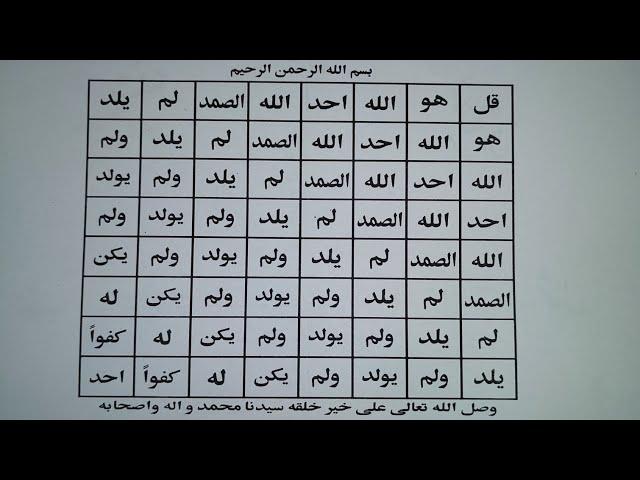 بسم الله الرحمن الرحيم
قل هو الله احد الله الصمد لم يلد
هو الله احد الله الصمد لم يلد ولم
الله احد الله الصمد لم يلد ولم يولد
احد الله الصمد لم يلد ولم يولد ولم
الله الصمد لم يلد ولم يولد ولم يكن
الصمد لم يلد ولم يولد ولم يكن له
لم يلد ولم يولد ولم يكن له كفواً
يلد ولم يولد ولم يكن له كفواً احد
وصل الله تعالى على خير خلقه سيدنا محمد و اله واصحابه